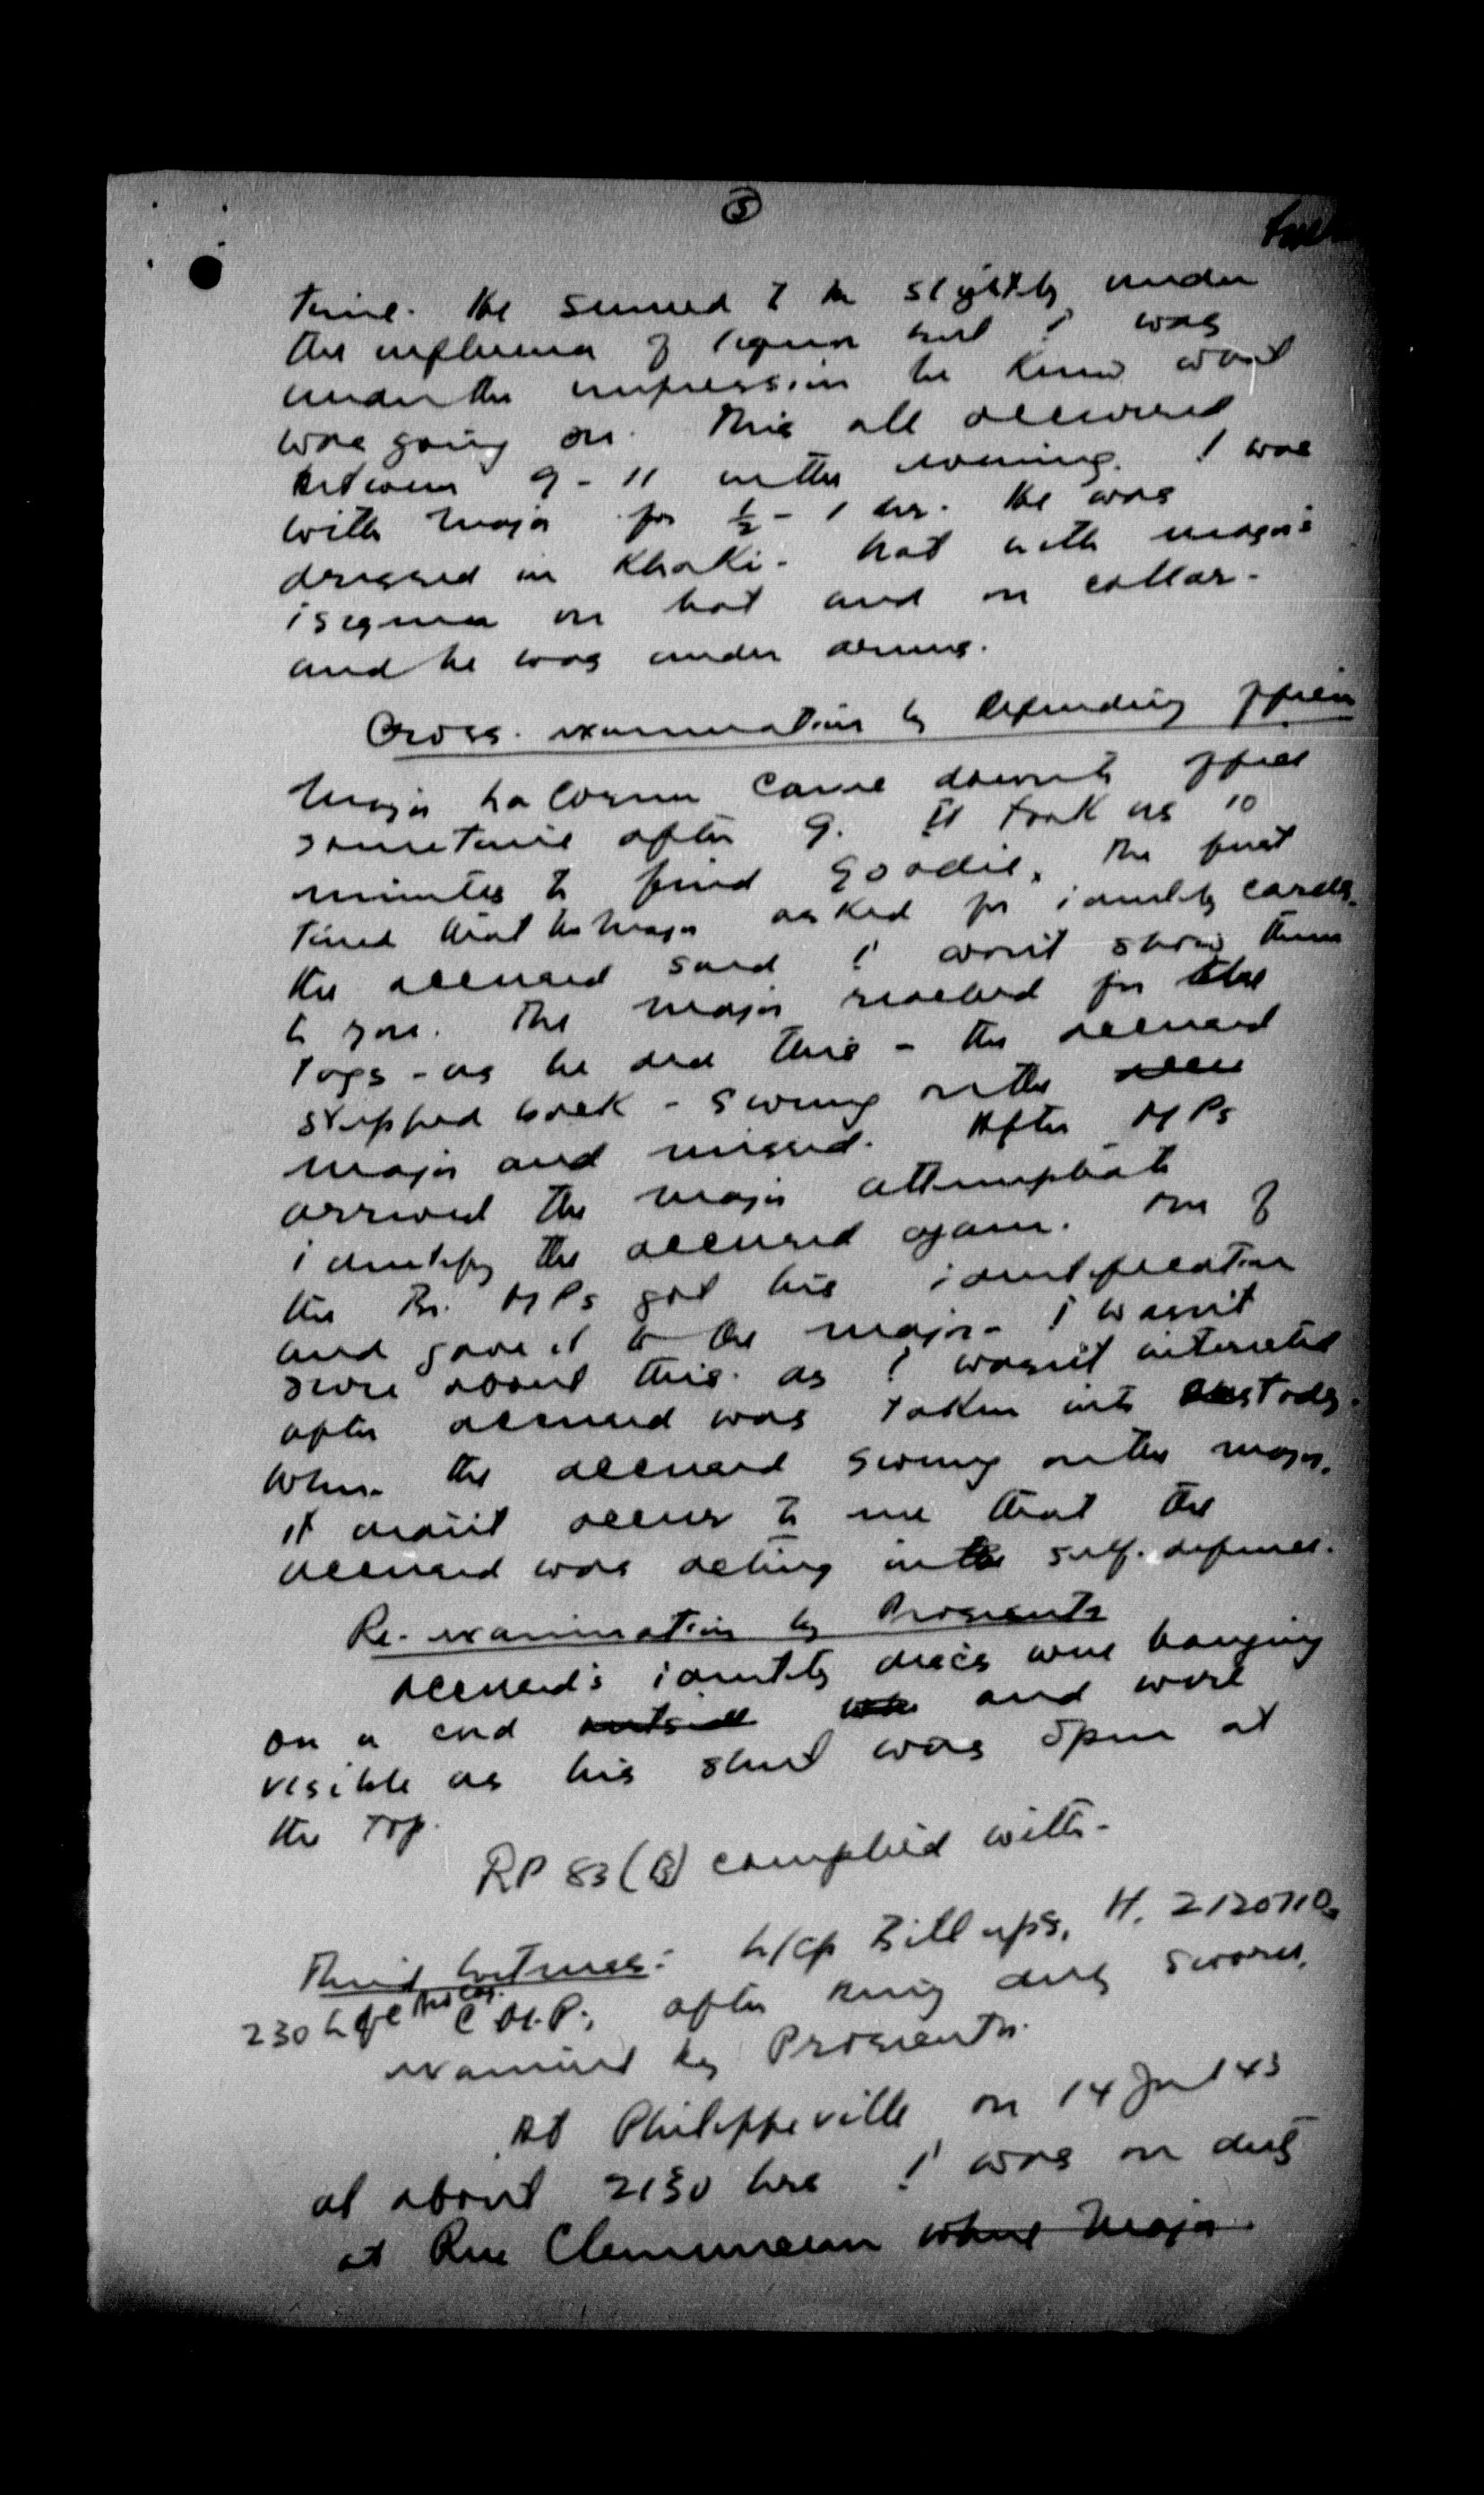 5
time. He seemed to be slightly under
the influence of liquor but I was
under the impression he knew what
was going on. This all occurred
between 9 - 11 in the evening. I was
with Major for ½ - 1 hr. He was
dressed in Khaki - hat with major's
isignia on hat and on collar -
and he was under arms.
Cross-examination by Defending Officer
Major La Corne came down to office
sometime after 9. It took us 10
minutes to find Goodie. The first
time that the Major asked for identity cards
the accused said I won't show them
to you. The major reached for the
tags - as he did this - the accused
stepped back - swung on the accu
major and missed. After MPs
arrived the major attempted to
identify the accused again. One of
the Br. MPs got his identification
and gave it to the major - I wasn't
sure about this as I wasn't interested
after accused was taken into custody.
When the accused swung on the major,
it didn't occur to me that the
accused was acting in the self-defence.
Re-examination by Prosecutor
Accused's identity discs were hanging
on a cord outside and were
visible as his shirt was open at
the top.
RP 83 (B) complied with -
Third Witness: L/Cp Billups, H. 2120710
230 C.M.P., after being duly sworn,
examined by Prosecutor.
At Philippeville on 14 Jul 43
at about 2130 hrs I was on duty
at Rue Clemenceau where Major